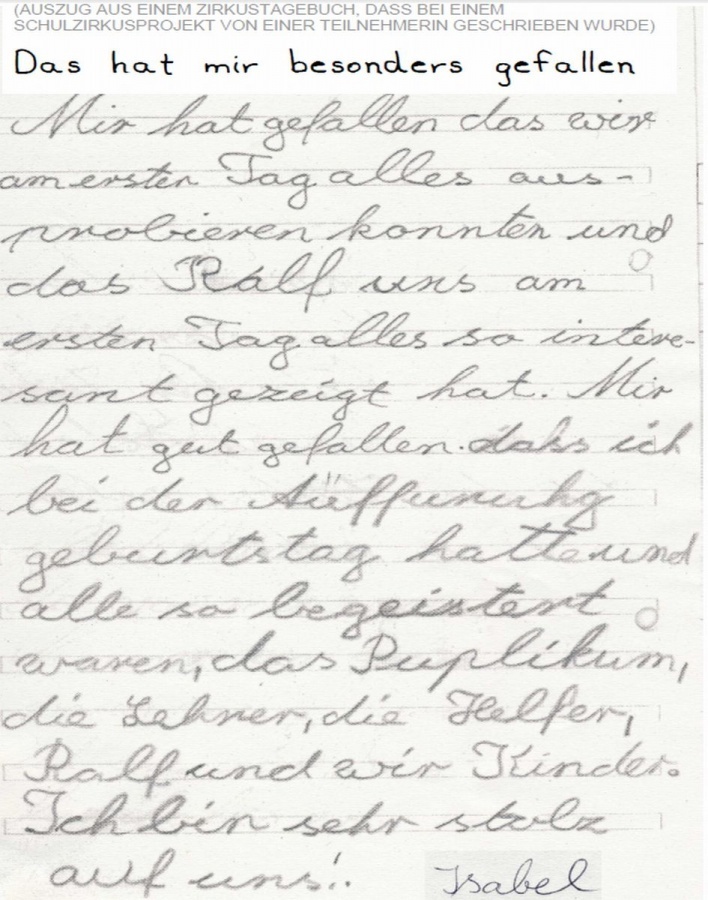 (AUSZUG AUS EINEM ZIRKUSTAGEBUCH, DASS BEI EINEM
SCHULZIRKUSPROJEKT VON EINER TEILNEHMERIN GESCHRIEBEN WURDE)
Das hat mir besonders gefallen
Mir hat gefallen das wir
am ersten Tag alles aus-
probieren konnten und
das Ralf uns am
ersten Tag alles so intere-
sant gezeigt hat. Mir
hat gut gefallen. dahs ich
bei der Aüffuruhg
geburtstag hatte und
alle so begeistert
waren, das Puplikum,
die Lehrer, die Helfer,
Ralf und wir Kinder.
Ich bin sehr stolz
auf uns!.
Isabel